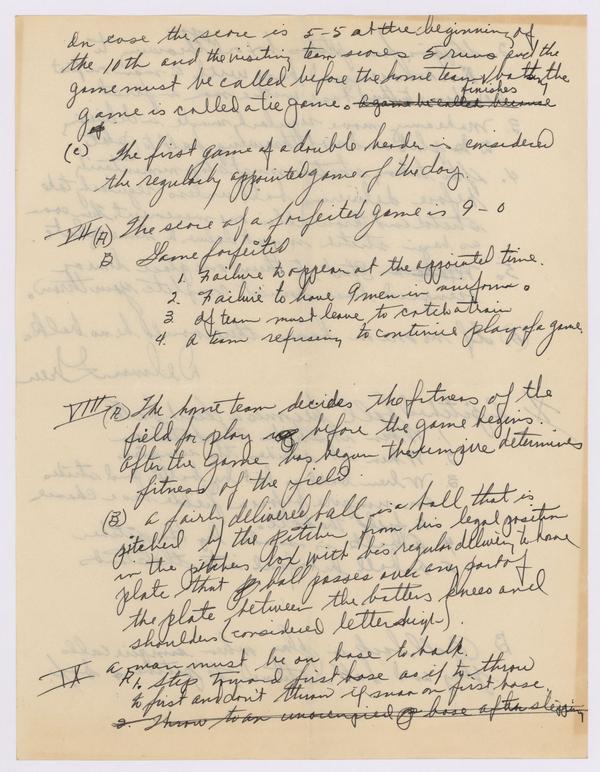 In case the score is 5-5 at the beginning of
the 10th and the visiting team scores 5 runs and the
game must be called before the home team finishes batting the
game is called a tie game. A game be called because
(C) The first game of a double header is considered
the regularly appointed game of the day.
VII (A) The score of a forfeited game is 9-0
B Game forfeited
1. Failure to appear at the appointed time.
2. Failure to have 9 men in uniform.
3. If team must leave to catch a train
4. A team refusing to continue play of a game.
VIII (A) The home team decides the fitness of the
field for play before the game begins.
After the game has begun the umpire determines
fitness of the field.
(B) A fairly delivered ball is a ball that is
pitched by the pitcher from his legal position
in the pitchers box with his regular delivery to home
plate that ball passes over any part of
the plate between the batters knees and
shoulders (considered letters high).
IX A man must be on base to balk.
A 1. Step toward first base as if to throw
to first and don't throw if man on first base.
2. Throw to an unoccupied base after stepping